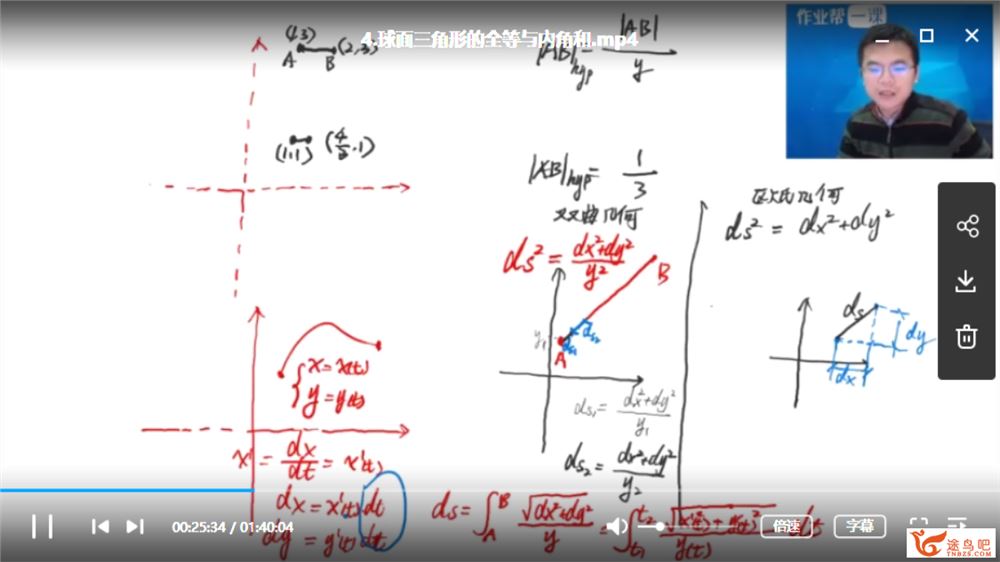 4.球面三角形的全等与内角和.mp4
作业帮一课
(1,3)
A
B
(2,3)
|AB|hyp = |AB|/y
(1,1)
(4/3,1)
|AB|hyp = 1/3
双曲几何
ds² = (dx²+dy²)/y²
B
y₁
ds₂
ds₁
A
ds₁ = (dx²+dy²)/y₁
ds₂ = (dx²+dy²)/y₂
欧氏几何
ds² = dx²+dy²
ds
dy
dx
{ x = x(t)
y = y(t)
x' = dx/dt = x'(t)
dx = x'(t) dt
dy = y'(t) dt
ds = ∫_A^B √(dx²+dy²)/y = ∫_{t₁}^{t₂} √(x'(t)²+y'(t)²)/y(t) dt
00:25:34 / 01:40:04
倍速
字幕
途鸟吧
TNBZS.COM